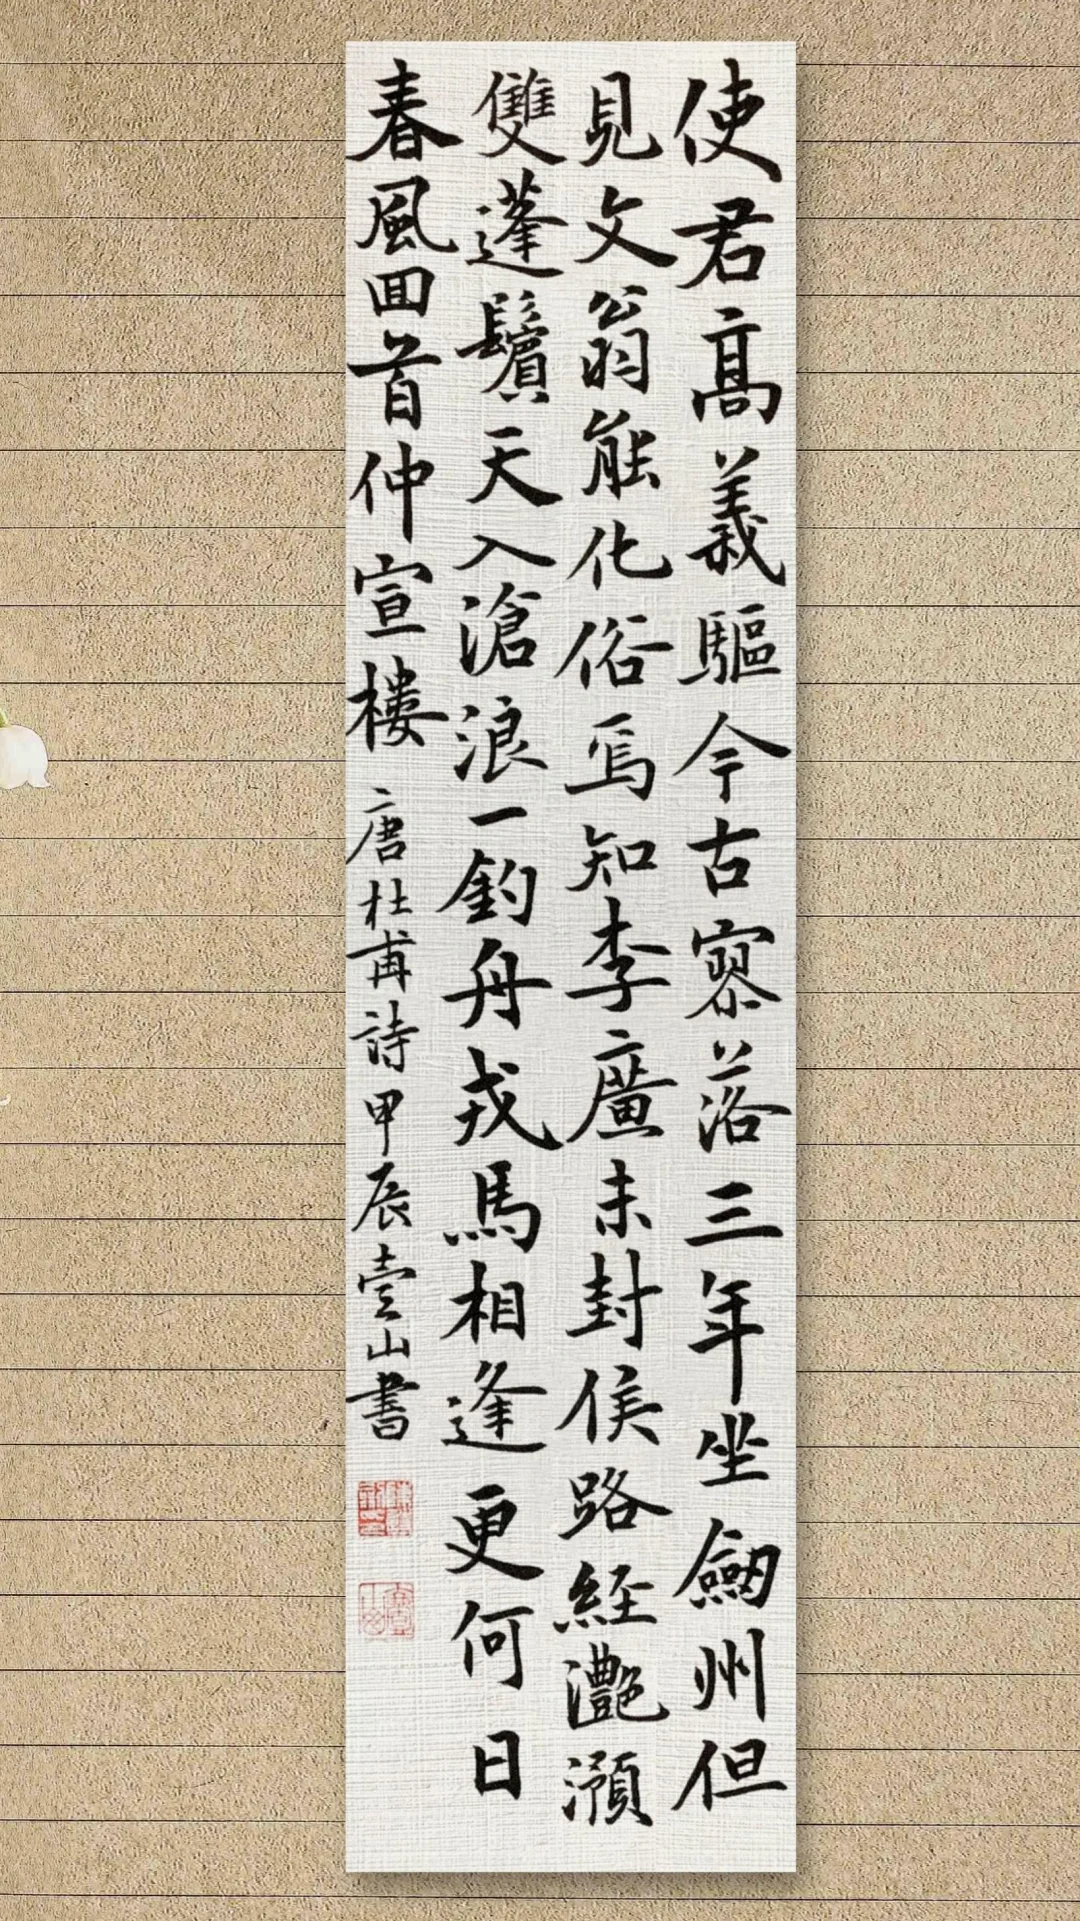 使君高義驅今古寥落三年坐劒州但
見文翁能化俗焉知李廣未封侯路經灔澦
雙蓬鬢天入滄浪一釣舟戎馬相逢更何日
春風回首仲宣樓
唐杜甫詩甲辰壹山書